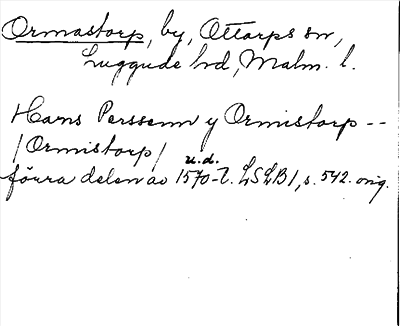 Ormastorp, by, Ottarps sn,
Luggude hd, Malm. l.
Hans Perssenn y Ormistorp --
/Ormistorp/
u.d.
förra delen av 1570-t. LSLB1, s. 542. orig.